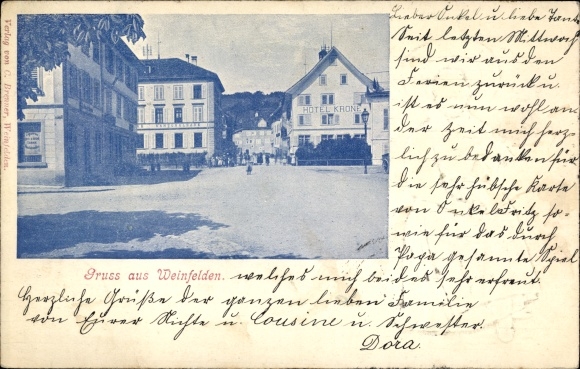 Lieber Onkel u. liebe Tante
Seit letzten Mittwoch
sind wir aus den
Ferien zurück u.
ist es nun wohl an
der Zeit mich herz-
lich zu bedanken für
die sehr hübsche Karte
von Onkel Fritz so-
wie für das durch
Papa gesamte Spiel
welches mich beides sehr erfreut.
Herzliche Grüße der ganzen lieben Familie
von Eurer Nichte u. Cousine u. Schwester.
Dora.
Gruss aus Weinfelden.
HOTEL KRONE
Verlag von C. Bremer, Weinfelden.